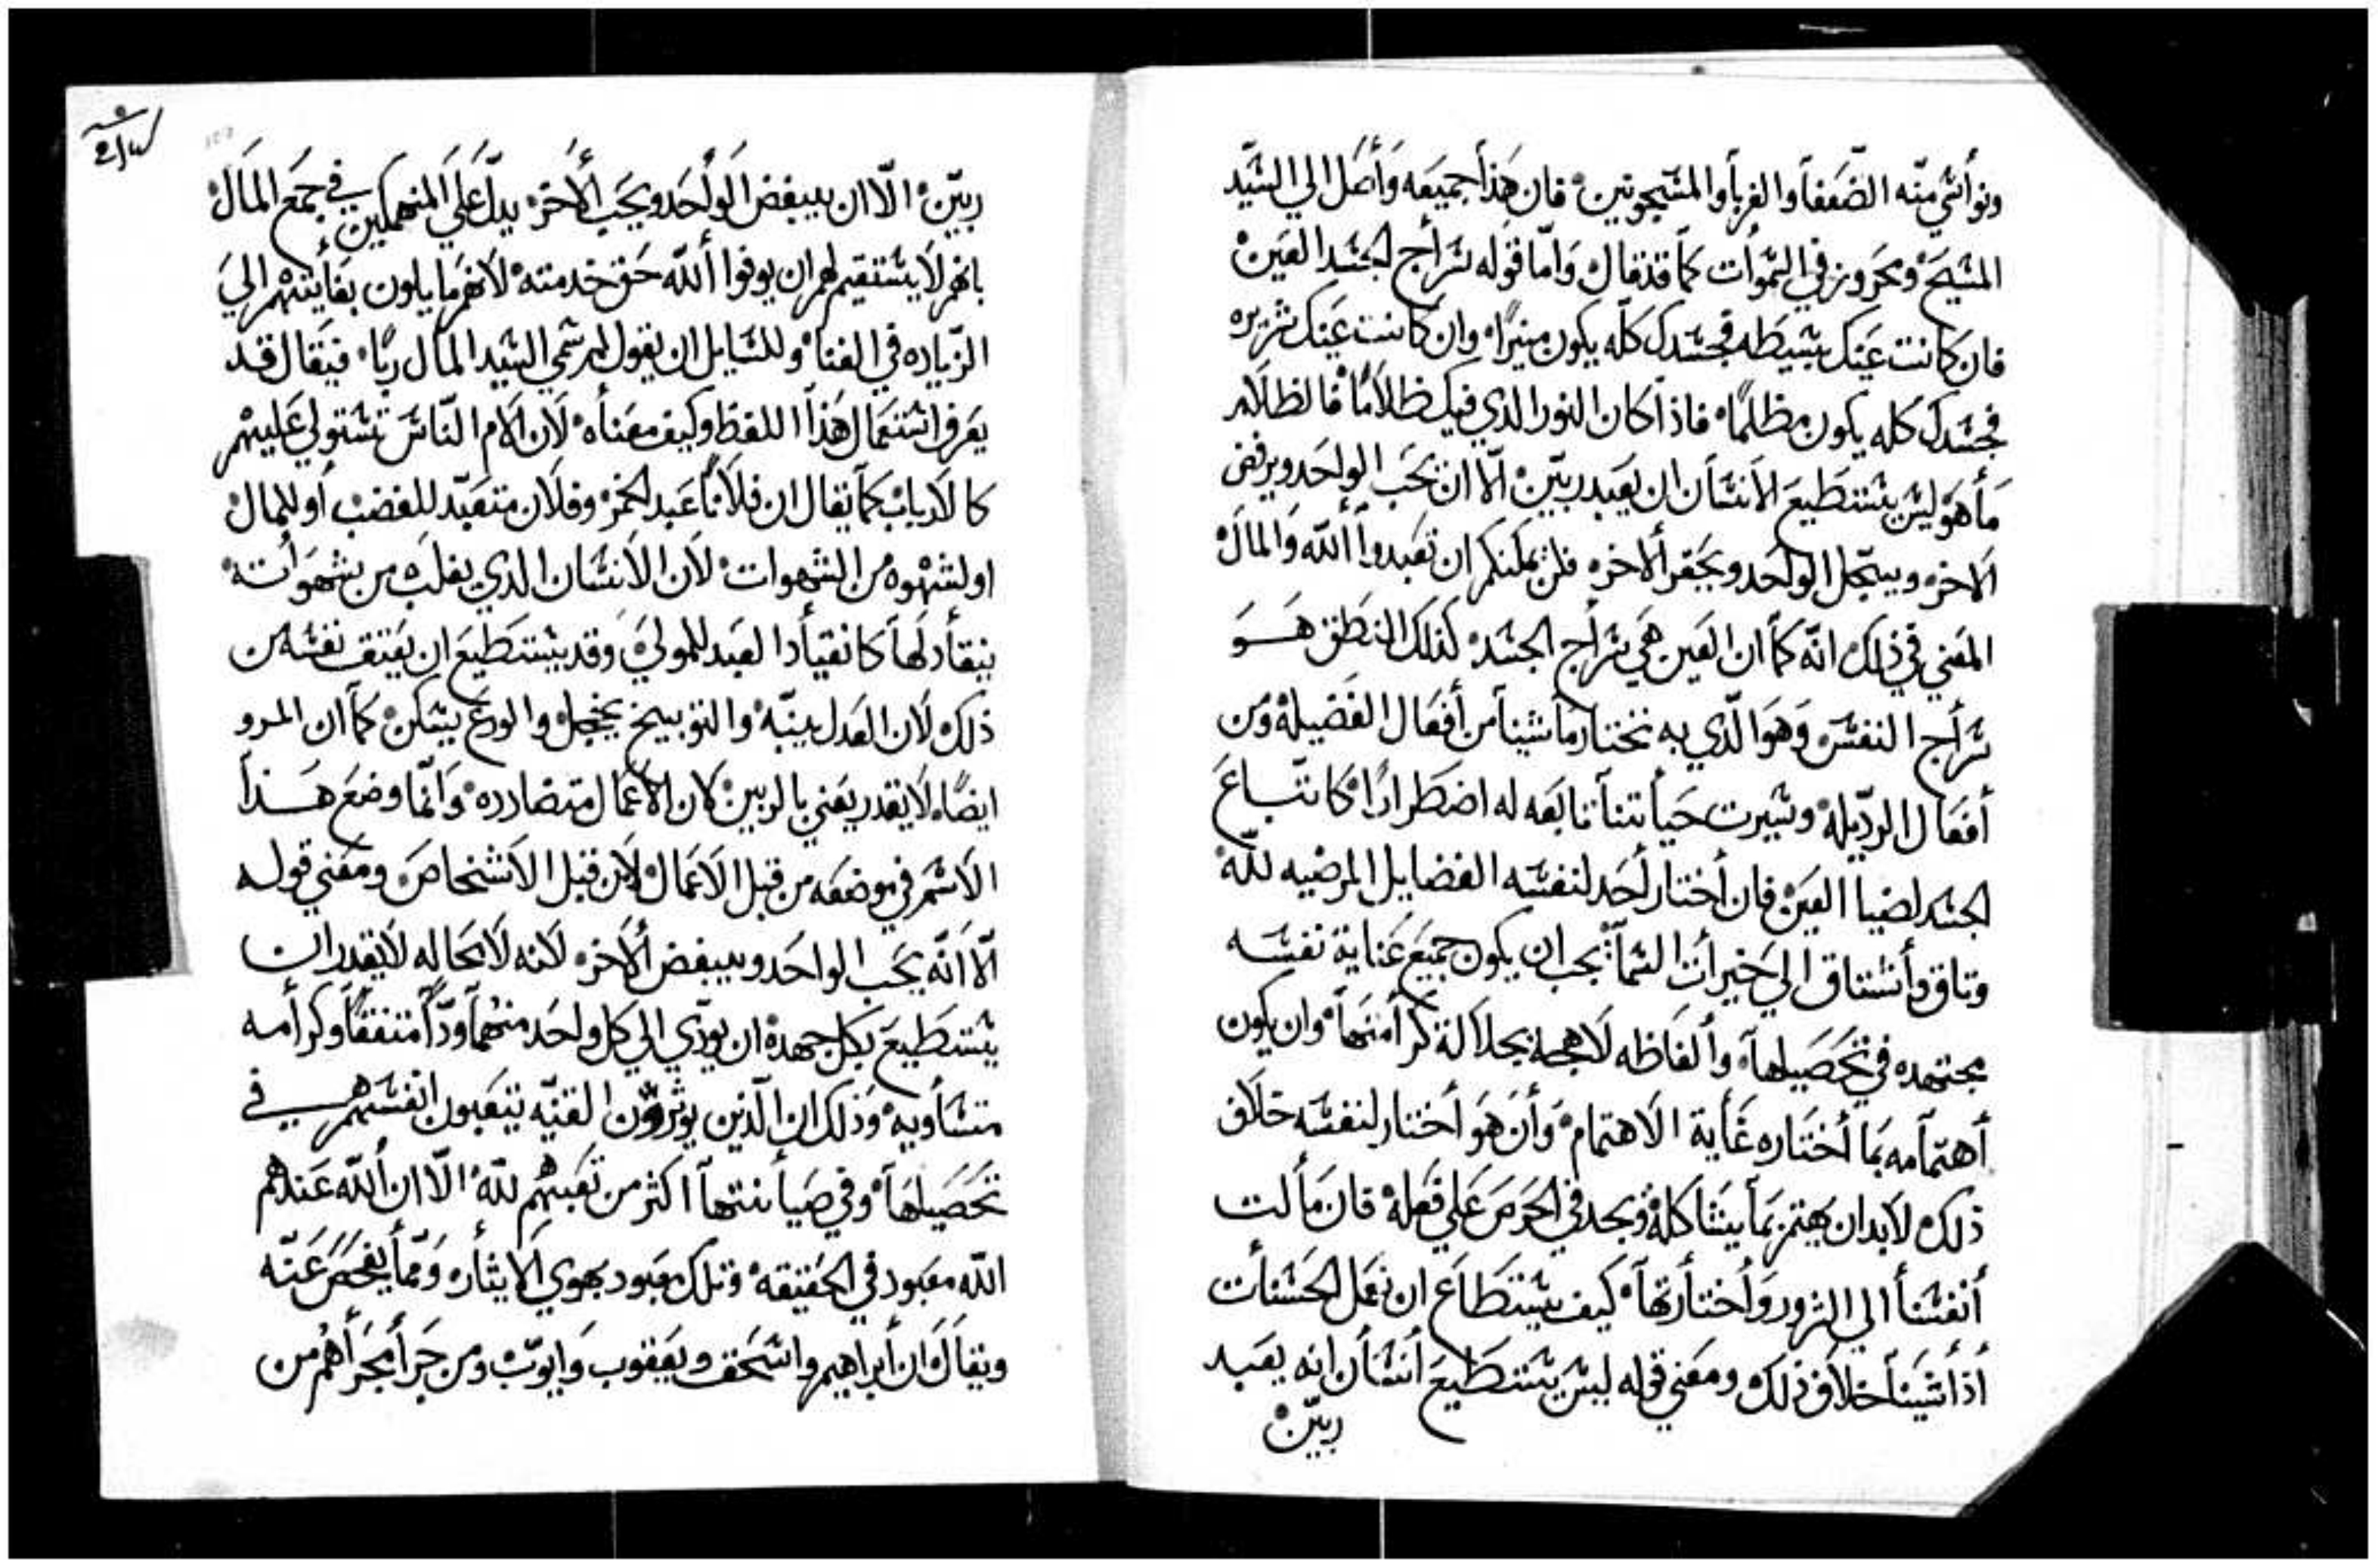 ونوأسي منه الضعفا والغربا والمسجونين فان هذا جميعه واصل الي السيد
المسيح ومحروز في السموات كما قد قال واما قوله سراج الجسد العين
فان كانت عينك بسيطه فجسدك كله يكون منيرًا وان كانت عينك شريره
فجسدك كله يكون مظلمًا فاذا كان النور الذي فيك ظلامًا فالظلام
ما هو ليس يستطيع الانسان ان يعبد ربين الا ان يحب الواحد ويرفض
الاخر ويبجل الواحد ويحقر الاخر فلن يمكنكم ان تعبدوا الله والمال
المعني في ذلك انه كما ان العين هي سراج الجسد كذلك النطق هو
سراج النفس وهو الذي به نختار ما شينا من أفعال الفضيلة ومن
أفعال الرديله وسيرت حياتنا تابعه له اضطرارًا كاتباع
الجسد لضيا العين فان أختار أحد لنفسه الفضايل المرضيه لله
وتاق وأشتاق الي خيرات السما يجب ان يكون جميع عناية نفسه
مجتهده في تحصيلها وألفاظه لاهجة بجلالة كرامتها وان يكون
أهتمامه بما أختاره غاية الاهتمام وأن هو أختار لنفسه خلاف
ذلك لابد ان يهتم بما يشاكله ويجد في الحرص علي فعله فان مالت
أنفسنا الي الشرور وأختارتها كيف يستطاع ان نعمل الحسنات
أذا شينا خلاف ذلك ومعني قوله ليس يستطيع أنسان انه يعبد
ربين
ربين الا ان يبغض الواحد ويحب الأخر يدل علي المنهمكين في جمع المال
بانهم لا يستقيم لهم ان يوفوا الله حق خدمته لانهم مايلون بغايتهم الي
الزياده في الغنا وللسايل ان يقول لم سمي السيد المال ربًا فيقال قد
يعرف استعمال هذا اللفظ وكيف معناه لان الام الناس تستولي عليهم
كالارباب كما يقال ان فلانًا عبد الخمر وفلان متعبد للغضب أو للمال
او لشهوه من الشهوات لان الانسان الذي يغلب من شهواته
ينقاد لها كانقياد العبد للمولي وقد يستطيع ان يعتق نفسه من
ذلك لان العدل ينبه والتوبيخ يخجل والورع يسكن كما ان المرو
ايضًا لا يقدر يعني بالربين لان الاعمال متضادده وانما وضع هذا
الاسم في موضعه من قبل الاعمال لا من قبل الاشخاص ومعني قوله
الا انه يحب الواحد ويبغض الاخر لانه لا محاله لا يقدر ان
يستطيع بكل جهده ان يودي الي كل واحد منهما ودًا متفقًا وكرامه
متساويه وذلك ان الذين يوثرون القنيه يتعبون انفسهم في
تحصيلها وفي صيانتها اكثر من تعبهم لله الا ان الله عندهم
الله معبود في الحقيقه وتلك معبود بهوي الايثار ومما يفحص عنه
ويقال ان أبراهيم واسحق ويعقوب وايوب ومن جرا مجراهم من